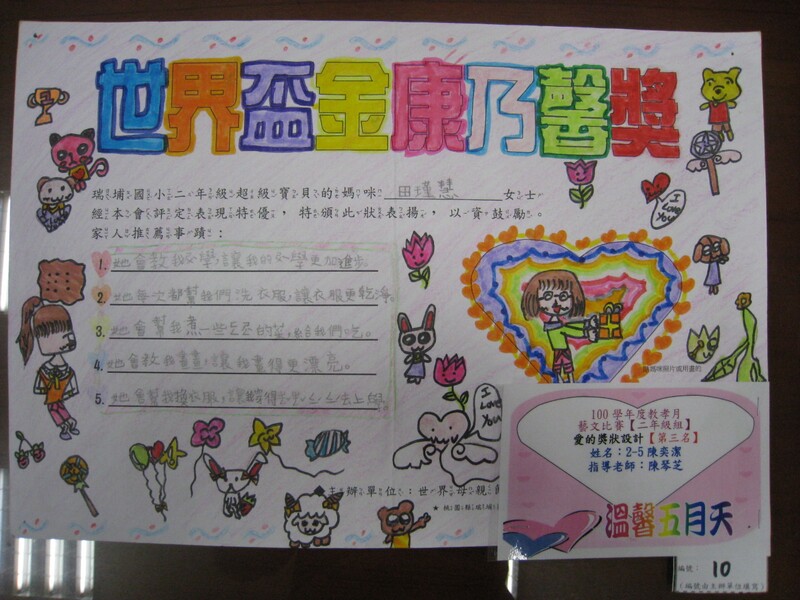 世界盃金康乃馨獎
I Love You
瑞埔國小二年級超級寶貝的媽咪 田瑾慧 女士
經本會評定表現特優，特頒此狀表揚，以資鼓勵。
家人推薦事蹟：
1. 她會教我數學，讓我的數學更加進步。
2. 她每次都幫我們洗衣服，讓衣服更乾淨。
3. 她會幫我煮一些ㄓㄥ的菜，給我們吃。
4. 她會教我畫畫，讓我畫得更漂亮。
5. 她會幫我換衣服，讓
I Love You
主辦單位：世界母親
★桃園縣瑞埔
100學年度教孝月
藝文比賽【二年級組】
愛的獎狀設計【第三名】
姓名：2-5 陳奕潔
指導老師：陳琴芝
溫馨五月天
編號： 10
(編號由主辦單位填寫)